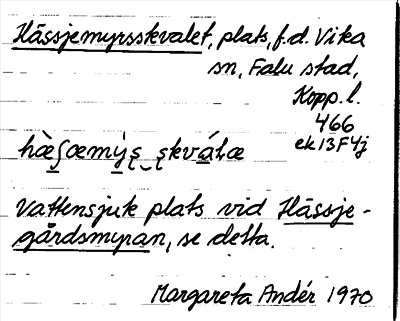 Hässjemyrsskvalet, plats, f.d. Vika
sn, Falu stad,
Kopp. l.
466
ek 13F4j
hæ̀ʃæmy̆s skválæ
Vattensjuk plats vid Hässje-
gårdsmyran, se detta.
Margareta Andér 1970